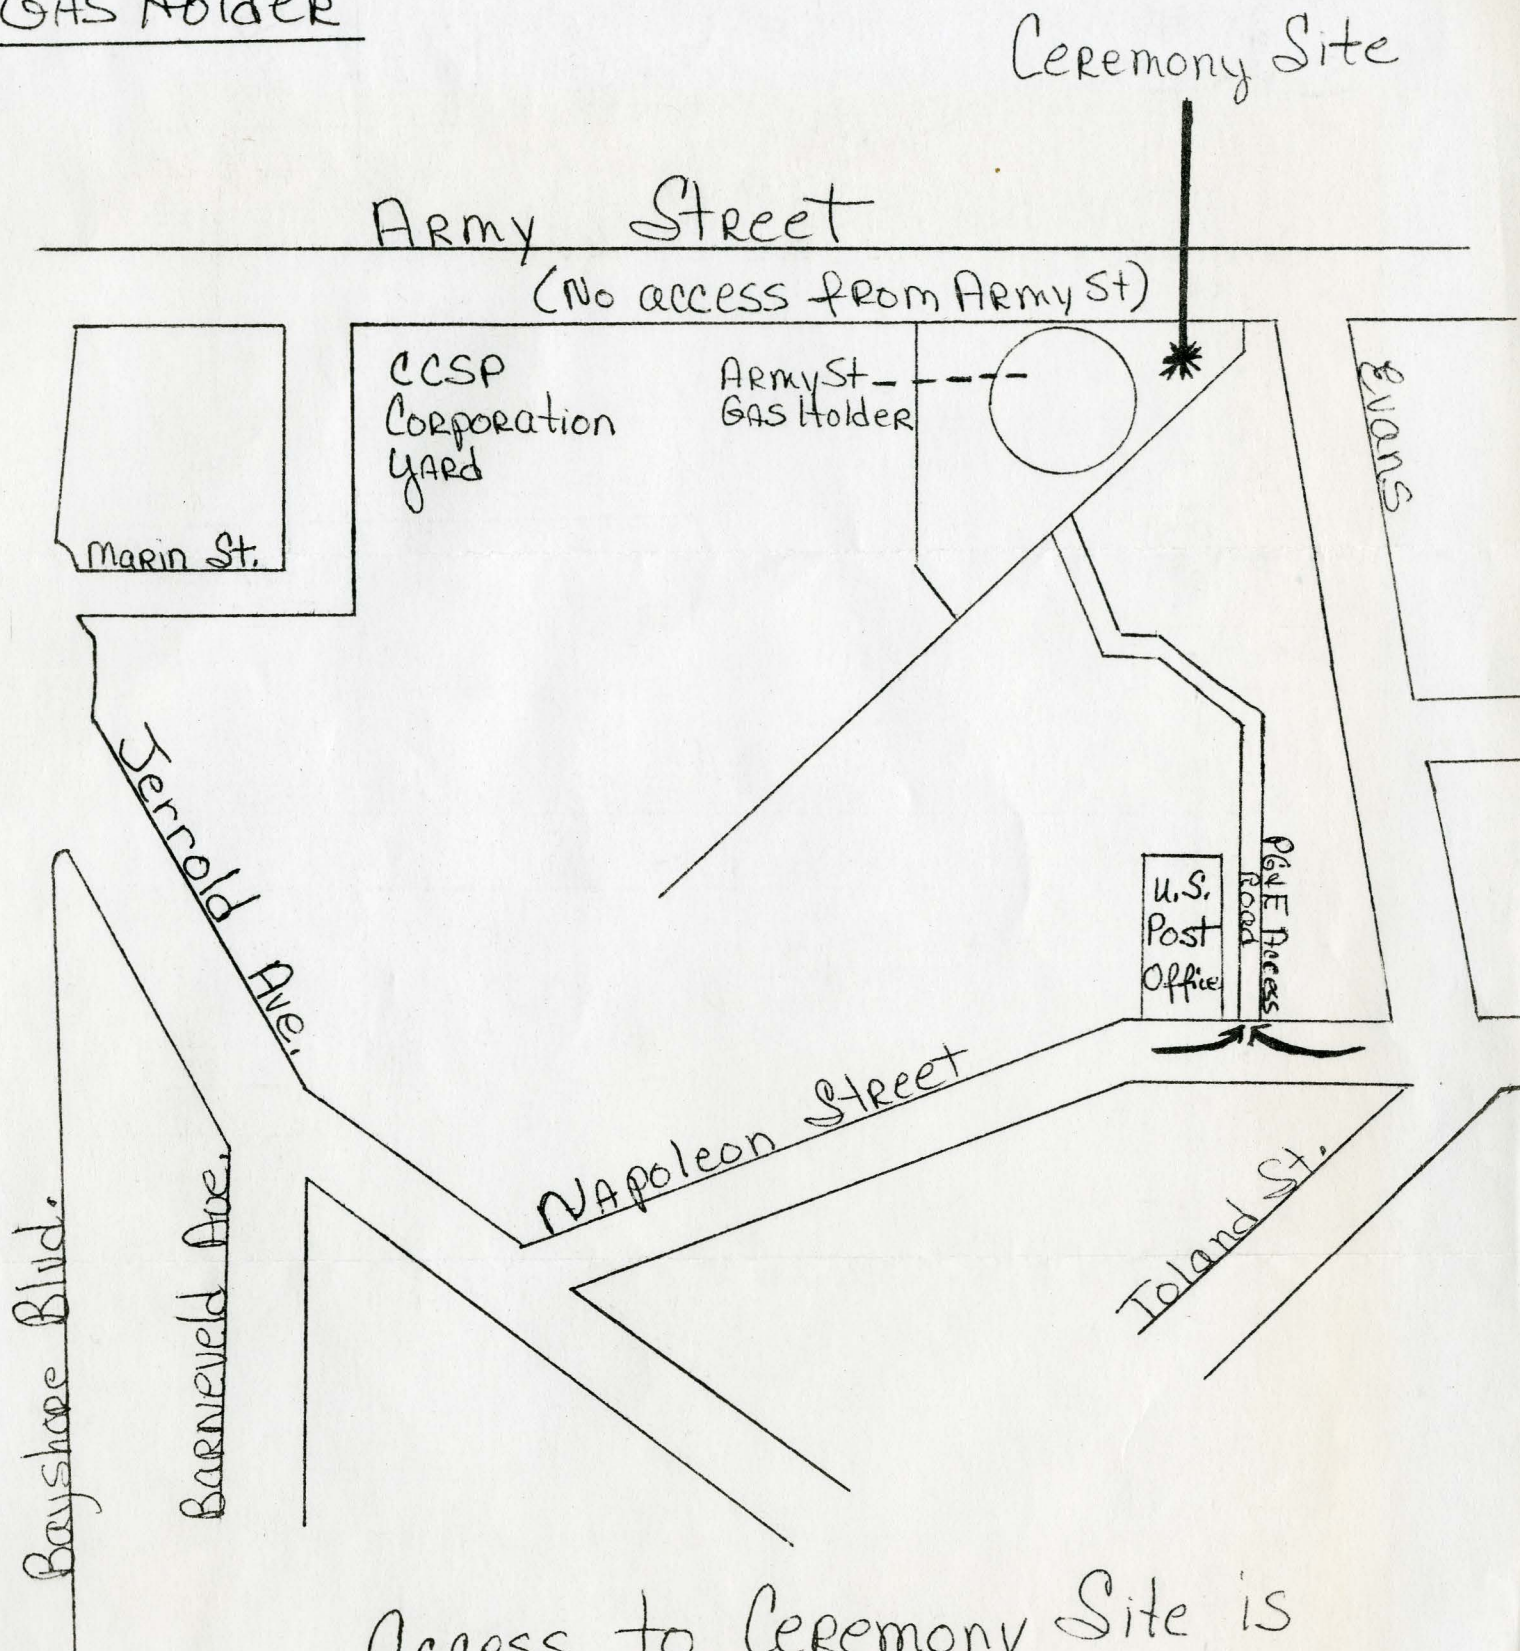 GAS Holder
Ceremony Site
Army Street
(No access from Army St)
CCSP
Corporation
Yard
Army St
GAS Holder
Evans
Marin St.
Jerrold Ave.
U.S.
Post
Office
PG&E Access
Road
Napoleon Street
Toland St.
Bayshore Blvd.
Barneveld Ave.
Access to Ceremony Site is